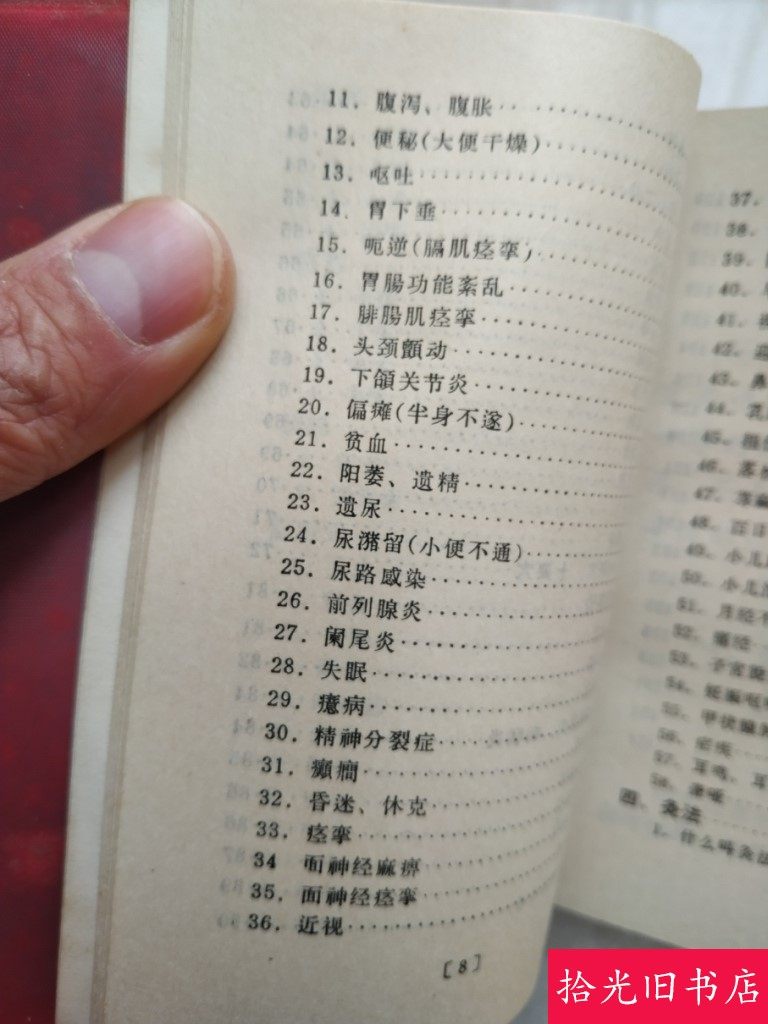 11．腹泻、腹胀
12．便秘(大便干燥)
13．呕吐
14．胃下垂
15．呃逆(膈肌痉挛)
16．胃肠功能紊乱
17．腓肠肌痉挛
18．头颈颤动
19．下颌关节炎
20．偏瘫(半身不遂)
21．贫血
22．阳萎、遗精
23．遗尿
24．尿潴留(小便不通)
25．尿路感染
26．前列腺炎
27．阑尾炎
28．失眠
29．癔病
30．精神分裂症
31．癫痫
32．昏迷、休克
33．痉挛
34 面神经麻痹
35．面神经痉挛
36．近视
〔8〕
37．
38．
39．
40．
41．
42．
43．鼻
44．
45．
46．
47．荨麻
48．百日
49．小儿
50．小儿
51．月经
52．痛经
53．子宫
54．妊娠呕
55．甲状腺
56．
57．耳鸣、耳
58．
四、灸法
1．什么叫灸法
拾光旧书店